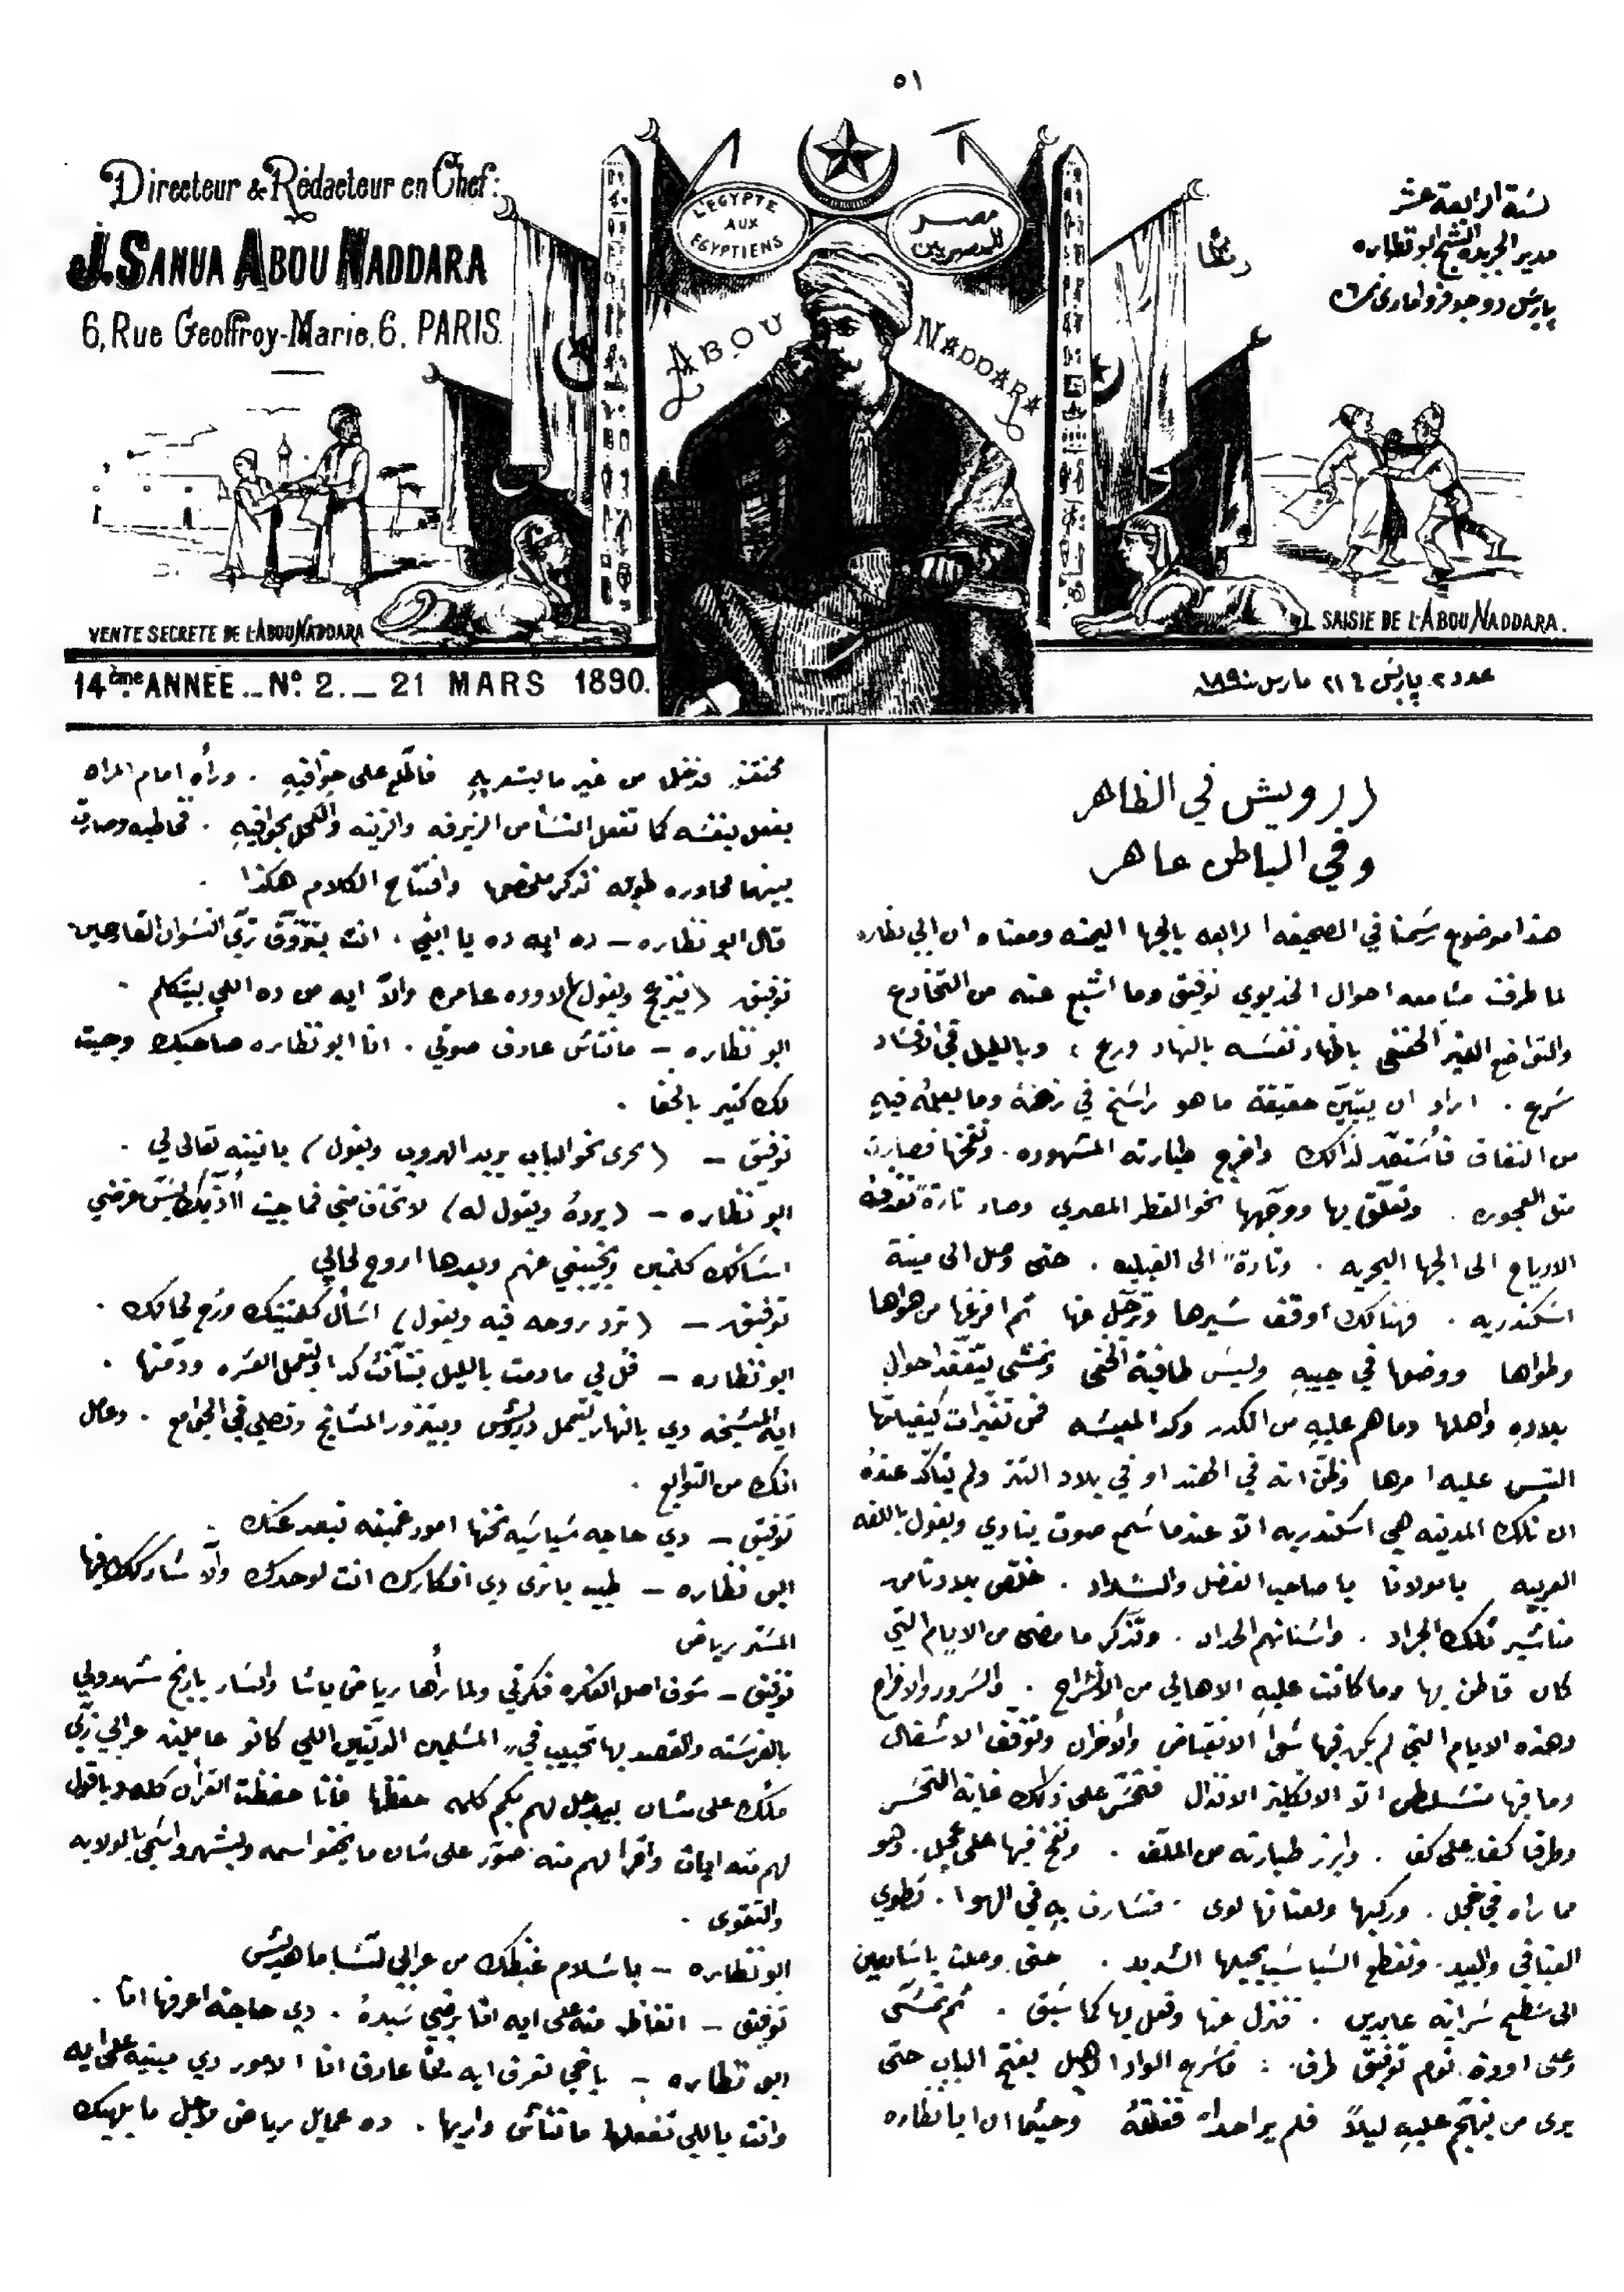 ٥١
Directeur & Rédacteur en Chef:
J. SANUA ABOU NADDARA
6, Rue Geoffroy-Marie, 6, PARIS.
L'EGYPTE
AUX
EGYPTIENS
مصر
للمصريين
ABOU NADDARA
السنة الرابعة عشر
مدير الجريدة الشيخ ابو نظاره
VENTE SECRETE DE L'ABOU NADDARA
SAISIE DE L'ABOU NADDARA.
14ème ANNÉE _ No. 2. _ 21 MARS 1890.
عدد ٢ باريس في ٢١ مارس سنة ١٨٩٠
درويش في الظاهر
وفي الباطن عاهر
هذا موضوع رسمنا في الصحيفه الرابعه بالجها اليمنه ومعناه ان ابي نظاره
لما طرقت مسامعه احوال الخديوي توفيق وما اشيع عنه من التخادع
والتواضع الغير الحقيقي باظهار نفسه بالنهار ورع، وبالليل في الافساد
شرع . اراد ان يبيّن حقيقة ما هو راسخ في ذهنه وما يعلمه فيه
من النفاق فاستعد لذالك واخرج طيارته المشهوره . ونفخها فصارت
مثل العجوره . وتعلّق بها ووجّهها نحو القطر المصري وصار تارة تقذفه
الارياح الى الجها البحريه . وتارة الى القبليه . حتى وصل الى مينة
اسكندريه . فهنالك اوقف سيرها وترجّل عنها ثم افرغها من هواها
وطواها ووضعها في جيبه ولبس طاقية الخفى وتمشى ليتفقد احوال
بلاده واهلها وما هم عليه من الكدر وكد المعيشه فمن تغيرات كيفياتها
التبس عليه امرها وظنّ انه في الهند او في بلاد التتر ولم يتأكد عنده
ان تلك المدينه هي اسكندريه الاّ عندما سمع صوت ينادي ويقول باللغه
العربيه يا مولانا يا صاحب الفضل والسداد . خلّص بلادنا من
مناشير تلك الجراد . واسنانهم الحداد . وتذكر ما مضى من الايام التي
كان قاطن بها وما كانت عليه الاهالي من الانشراح . والسرور والافراح
وهذه الايام التي لم يكن فيها سوا الانقباض والاحزان وتوقف الاشغال
وما فيها متسلطن الاّ الانكليز الانذال فتحسّر على ذلك غاية التحسّر
وطرقا كف على كف . وابرز طيارته من الملف . ونفخ فيها على عجل . وهو
مما راه في خجل . وركبها ولعنانها لوى . فسارت به في الهوا . تطوي
الفيافي والبيد . وتقطع السباسب بحيلها الشديد . حتى وصلت يا سامعين
الى سطح سراية عابدين . فنزل عنها وفعل بها كما سبق . ثم تمشّى
وعلى اوضة نوم توفيق طرق . فاسرع الواد الاهبل يفتح الباب حتى
يرى من يتهجّم عليه ليلاً فلم ير احداً فقفلهُ وحيثما ان ابا نظاره
مختفي فدخل من غير ما يشعر به فاطّلع على خوافيه . ورآه امام المراه
يفعل بنفسه كما تفعل النسا من الزبرقه والزينه والكحل بحوافيه . فخاطبه وصارت
بينهما محاوره طويله نذكر ملخصها وافتتاح الكلام هكذا .
قال ابو نظاره – ده ايه ده يا ابني . انت بتزوّق زيّ النسوان القارحين
توفيق (ينزعج ويقول) لا وده عامره والاّ ايه من ده اللي بيتكلم .
ابو نظاره – مانتاش عارف صوتي . انا ابو نظاره صاحبك وجيت
لك كتير بالخفا .
توفيق – (يجري نحو الباب يريد الهروب ويقول) يا نينه تعالى لي .
ابو نظاره – (يردهُ ويقول له) لا تخاف مني فما جيت أاذيك بس غرضي
اسالك كلمتين وتجيبني عنهم وبعدها اروح لحالي
توفيق – (ترد روحه فيه ويقول) اسأل كلمتينك ورح لحالك .
ابو نظاره – قل لي ما دمت بالليل بتتأنت كدا وبتعمل العشره ودّمنها .
ايه المشيخه دي بالنهار بتعمل درويش وبتزور المشايخ وتصلي في الجوامع . وعامل
انك من التوابع .
توفيق – دي حاجه سياسيه تحتها امور غميقه تبعد عنك .
ابو نظاره – طيب يا ترى دي افكارك انت لوحدك والاّ شاركك فيها
المستر رياض
توفيق – شوف اصل الفكره فكرتي ولما رأها رياض باشا والسار بارنج شهدولي
بالفرسنه والقصد بها تحبيب فيّ المسلمين الدينيين اللي كانو عاملين عرابي زيّ
ملك على شان بيدجل لهم بكم كلمه حفظها فانا حفظت القرآن كله وباقول
لهم منه ايات واقرا لهم منه صوّر على شان ما يخفو اسمه ويشهر واسمي بالولايه
والتقوى .
ابو نظاره – يا سلام غيظك من عرابي لسّا ما هديش
توفيق – اتغاظ منه على ايه انا برضي سيدهُ . دي حاجه اعرفها انا .
ابو نظاره – ياخي تعرف ايه بقا عارف انا الامور دي مبنيه على ايه
وانت ياللي تفعلها مانتاش داريها . ده عمايل رياض لاجل ما يلهيك